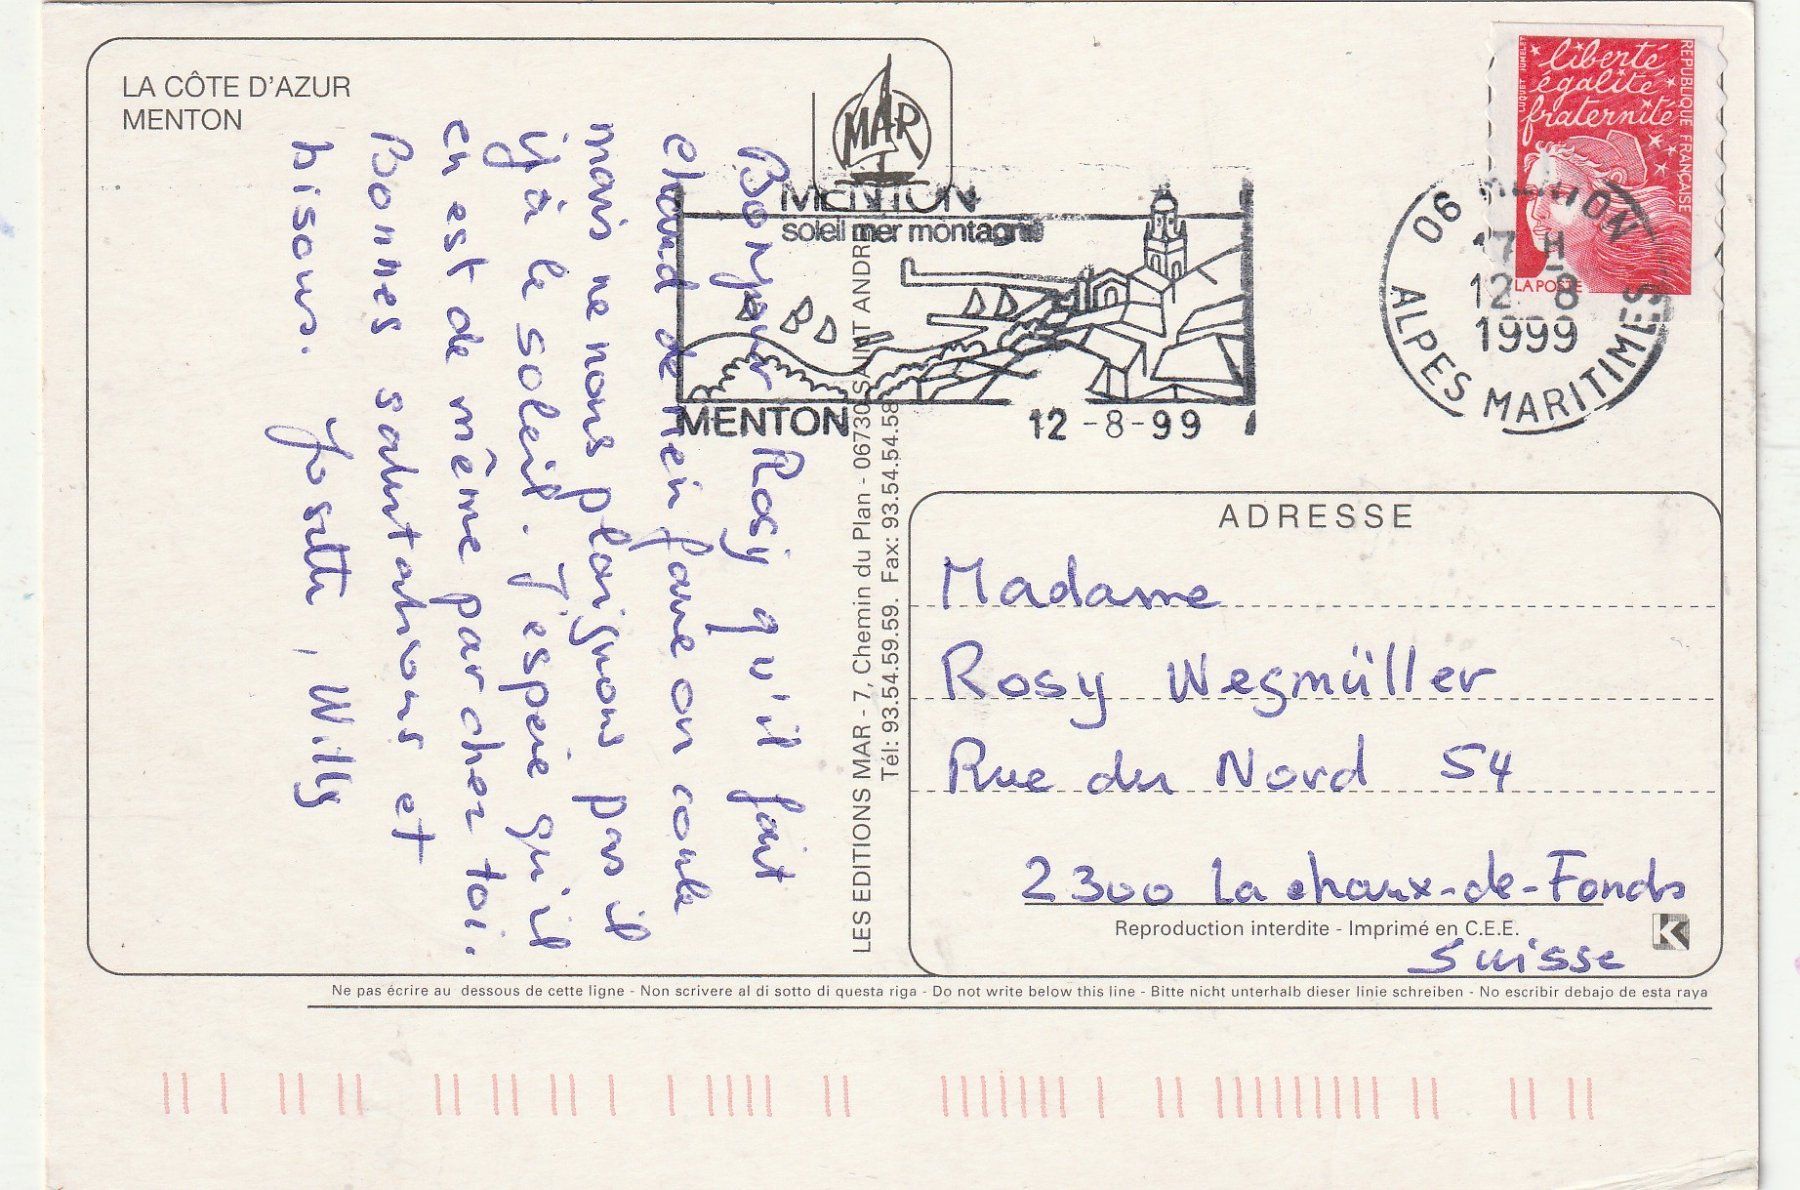 LA CÔTE D'AZUR
MENTON
MAR
MENTON
soleil mer montagne
MENTON
12 -8-99
06 MENTON
17 H
12 8
1999
ALPES MARITIMES
liberté
égalité
fraternité
REPUBLIQUE FRANÇAISE
LUQUET JUMELET
LA POSTE
Bonjour Rosy qu'il fait
chaud de rien faire on coule
mais ne nous plaignons pas il
y à le soleil. J'espère qu'il
en est de même par chez toi.
Bonnes salutations et
bisous. Josette, Willy
LES EDITIONS MAR - 7, Chemin du Plan - 06730 SAINT ANDR
Tél: 93.54.59.59. Fax: 93.54.54.58
ADRESSE
Madame
Rosy Wegmüller
Rue du Nord 54
2300 La chaux-de-Fonds
Reproduction interdite - Imprimé en C.E.E.
Suisse
K
Ne pas écrire au dessous de cette ligne - Non scrivere al di sotto di questa riga - Do not write below this line - Bitte nicht unterhalb dieser linie schreiben - No escribir debajo de esta raya